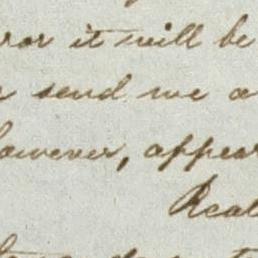 for it will be
send me a
however, appear
Real